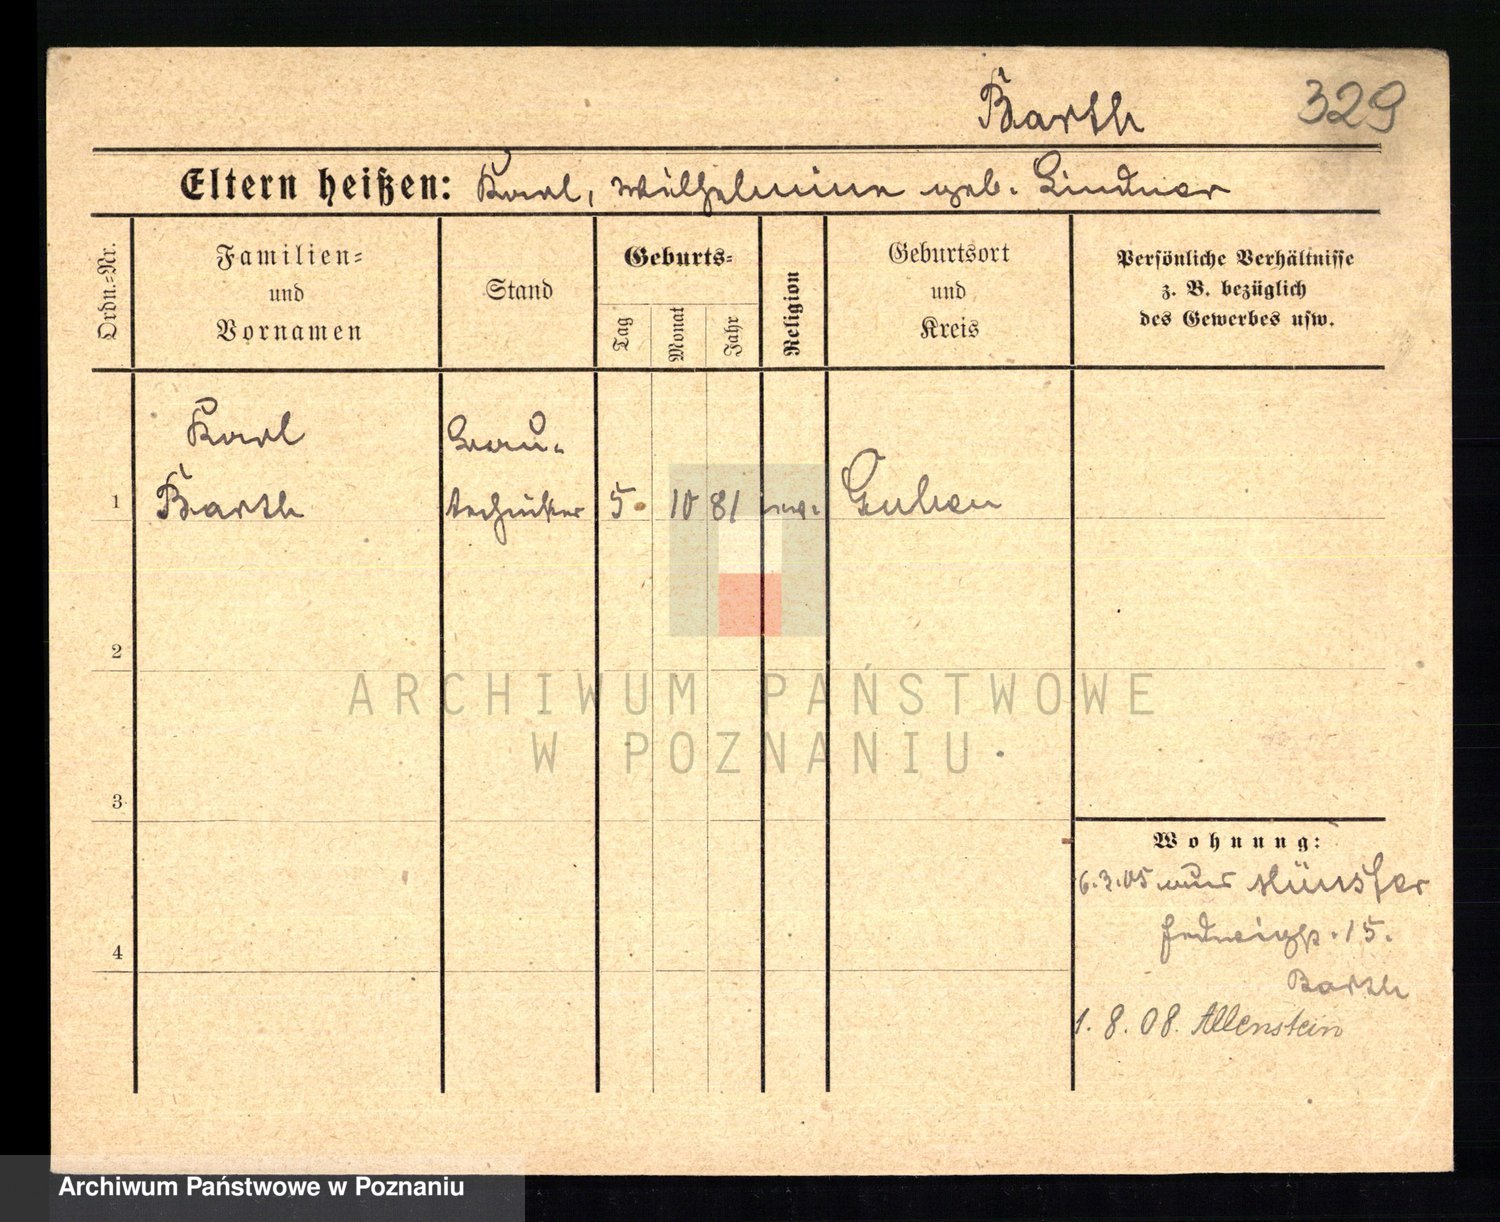 Barth 329
Eltern heißen: Karl, Wilhelmine geb. Lindner
Ordn.=Nr.
Familien=
und
Vornamen
Stand
Geburts=
Tag
Monat
Jahr
Religion
Geburtsort
und
Kreis
Persönliche Verhältnisse
z. B. bezüglich
des Gewerbes usw.
Karl Bau-
1 Barth techniker 5. 10 81 Guben
2
3
4
ARCHIWUM PAŃSTWOWE
W POZNANIU
Wohnung:
6.3.05 aus Münster
Hedwigstr. 15.
Barth
1. 8. 08. Allenstein
Archiwum Państwowe w Poznaniu